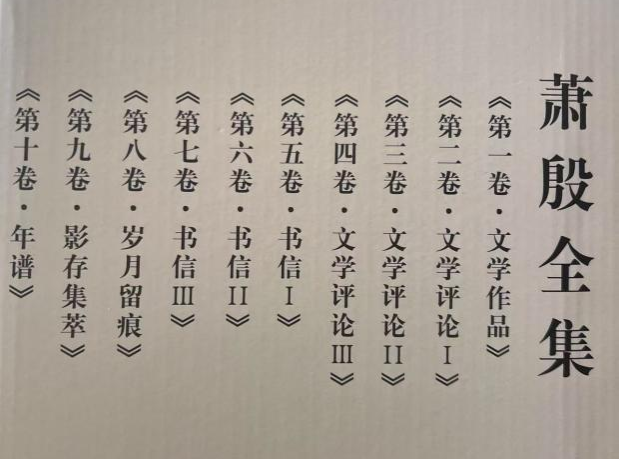 萧殷全集
《第一卷·文学作品》
《第二卷·文学评论Ⅰ》
《第三卷·文学评论Ⅱ》
《第四卷·文学评论Ⅲ》
《第五卷·书信Ⅰ》
《第六卷·书信Ⅱ》
《第七卷·书信Ⅲ》
《第八卷·岁月留痕》
《第九卷·影存集萃》
《第十卷·年谱》